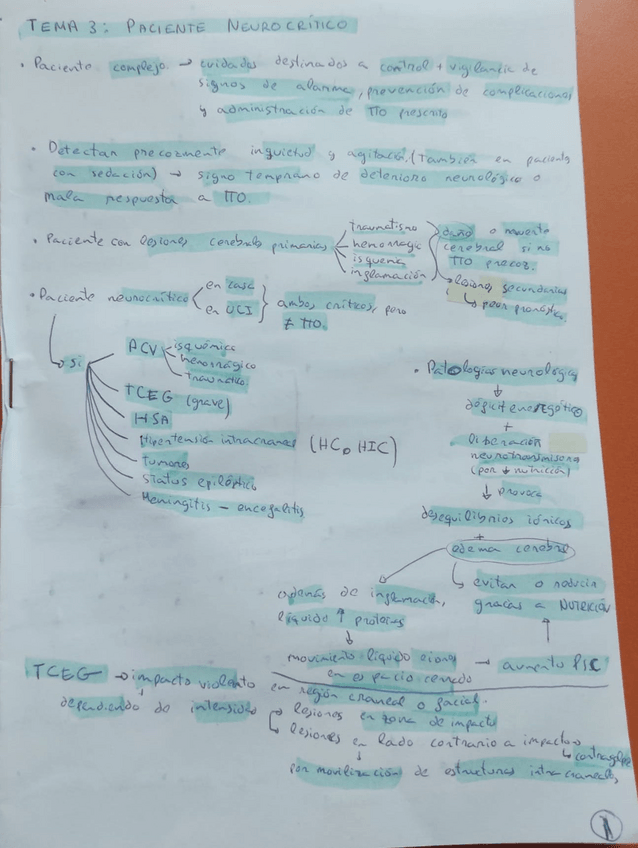 TEMA 3: PACIENTE NEUROCRÍTICO
• Paciente complejo → cuidados destinados a control + vigilancia de
signos de alarma, prevención de complicaciones
y administración de TTO prescrito
• Detectan precozmente inquietud y agitación. (También en paciente
con sedación) → signo temprano de deterioro neurológico o
mala respuesta a TTO.
• Paciente con lesiones cerebrales primarias
traumatismo
hemorragic
isquemia
inflamación
daño o muerte
cerebral si no
TTO precoz.
→ lesiones secundarias
↳ peor pronóstico
• Paciente neurocrítico
en casa
en UCI
ambos críticos, pero
≠ TTO.
→ si
ACV
isquémico
hemorrágico
traumático
TCEG (grave)
HSA
Hipertensión intracraneal (HC o HIC)
Tumores
Status epiléptico
Meningitis - encefalitis
• Patologías neurologicas
↓
déficit energético
+
liberación
neurotransmisores
(por ↓ nutrición)
↓ provoca
desequilibrios iónicos
+
edema cerebral
↳ evitar o reducir
gracias a NUTRICIÓN
además de inflamación,
líquido ↑ proteinas
↓
movimiento líquido e iones → aumento PIC
en espacio cerrado
TCEG → impacto violento en región craneal o facial.
dependiendo de intensidad
→ lesiones en zona de impacto
↳ lesiones en lado contrario a impacto →
↳ contragolpe
↓
por movilización de estructuras intracraneales
1